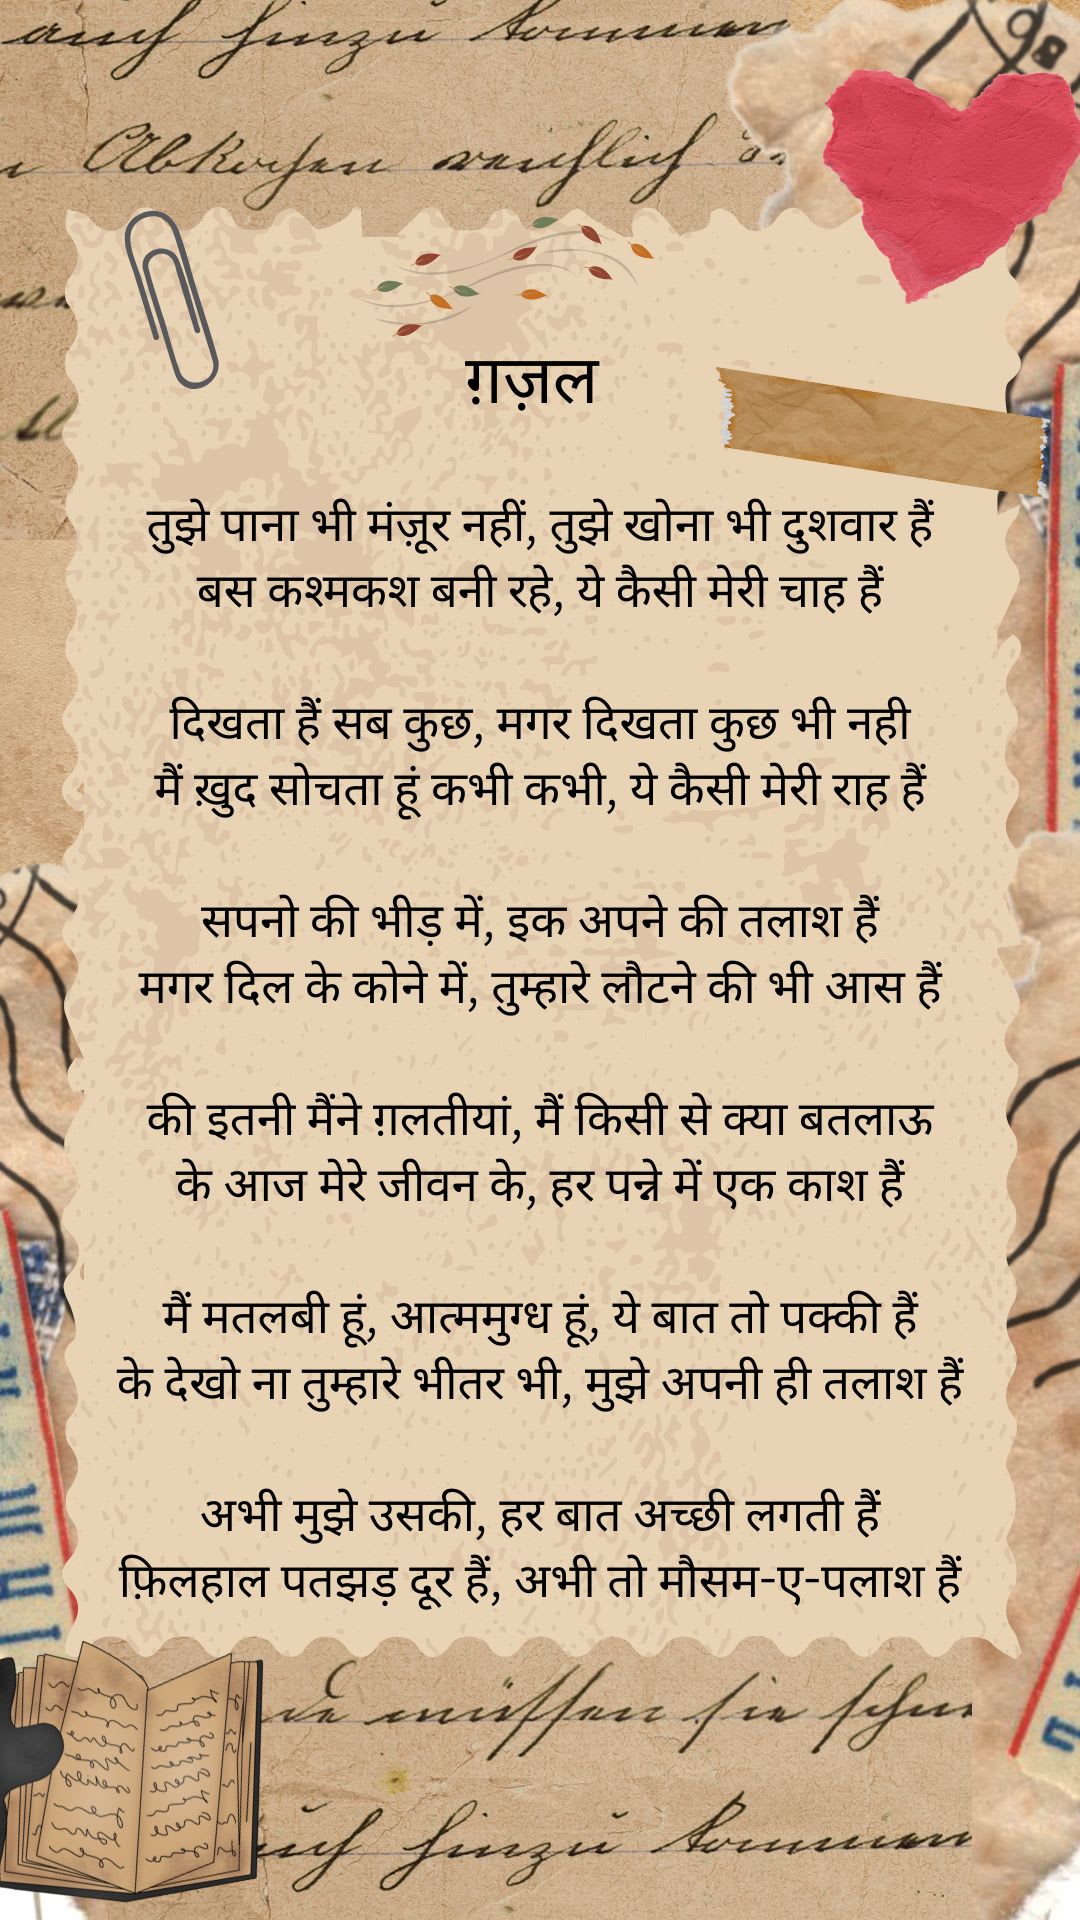 auch hinzu kommen
Abkochen reichlich
ग़ज़ल
तुझे पाना भी मंज़ूर नहीं, तुझे खोना भी दुशवार हैं
बस कश्मकश बनी रहे, ये कैसी मेरी चाह हैं
दिखता हैं सब कुछ, मगर दिखता कुछ भी नही
मैं ख़ुद सोचता हूं कभी कभी, ये कैसी मेरी राह हैं
सपनो की भीड़ में, इक अपने की तलाश हैं
मगर दिल के कोने में, तुम्हारे लौटने की भी आस हैं
की इतनी मैंने ग़लतीयां, मैं किसी से क्या बतलाऊ
के आज मेरे जीवन के, हर पन्ने में एक काश हैं
मैं मतलबी हूं, आत्ममुग्ध हूं, ये बात तो पक्की हैं
के देखो ना तुम्हारे भीतर भी, मुझे अपनी ही तलाश हैं
अभी मुझे उसकी, हर बात अच्छी लगती हैं
फ़िलहाल पतझड़ दूर हैं, अभी तो मौसम-ए-पलाश हैं
müssen sie
auch hinzu kommen